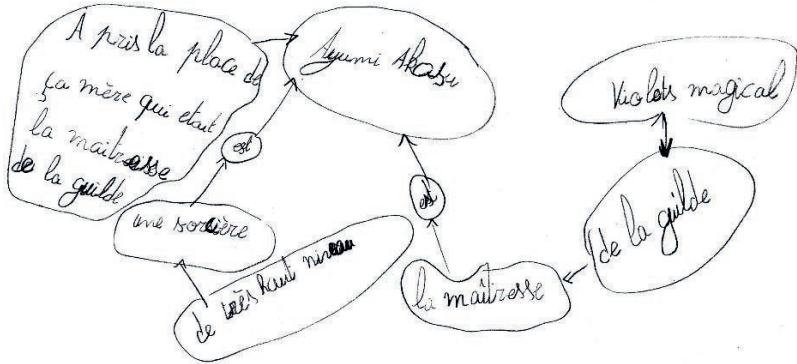 A pris la place de
ça mère qui etait
la maitresse
de la guilde
Ayumi
Violets magical
est
est
une sorcière
de la guilde
de très haut niveau
la maîtresse